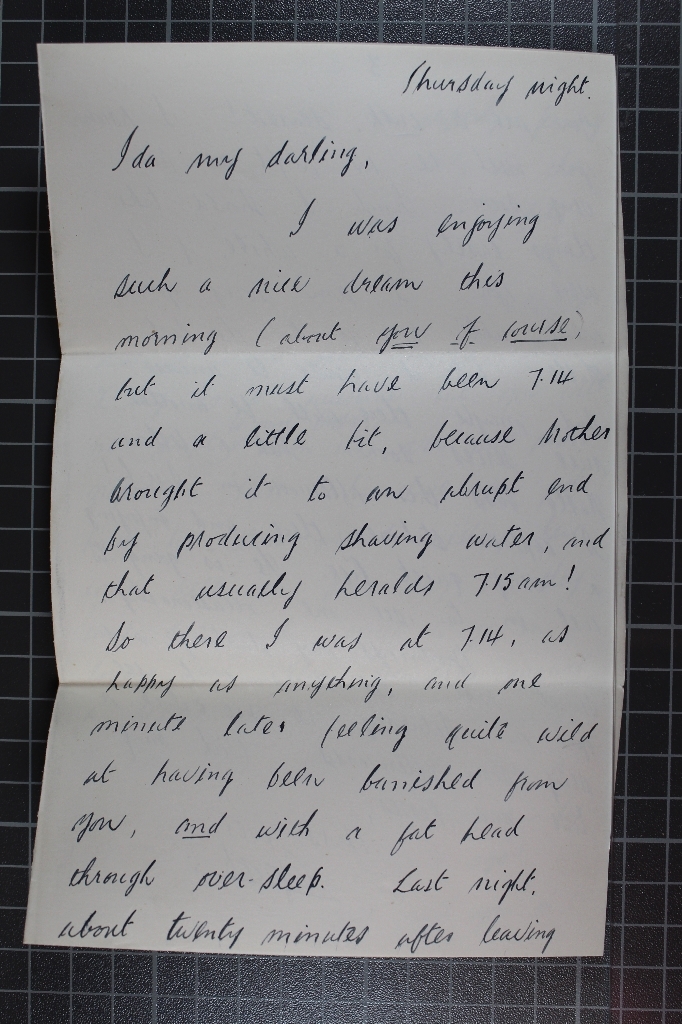 Thursday night.
Ida my darling,
I was enjoying
such a nice dream this
morning (about you of course)
but it must have been 7.14
and a little bit, because Mother
brought it to an abrupt end
by producing shaving water, and
that usually heralds 7.15 am!
So there I was at 7.14, as
happy as anything, and one
minute later feeling quite wild
at having been banished from
you, and with a fat head
through over-sleep. Last night,
about twenty minutes after leaving